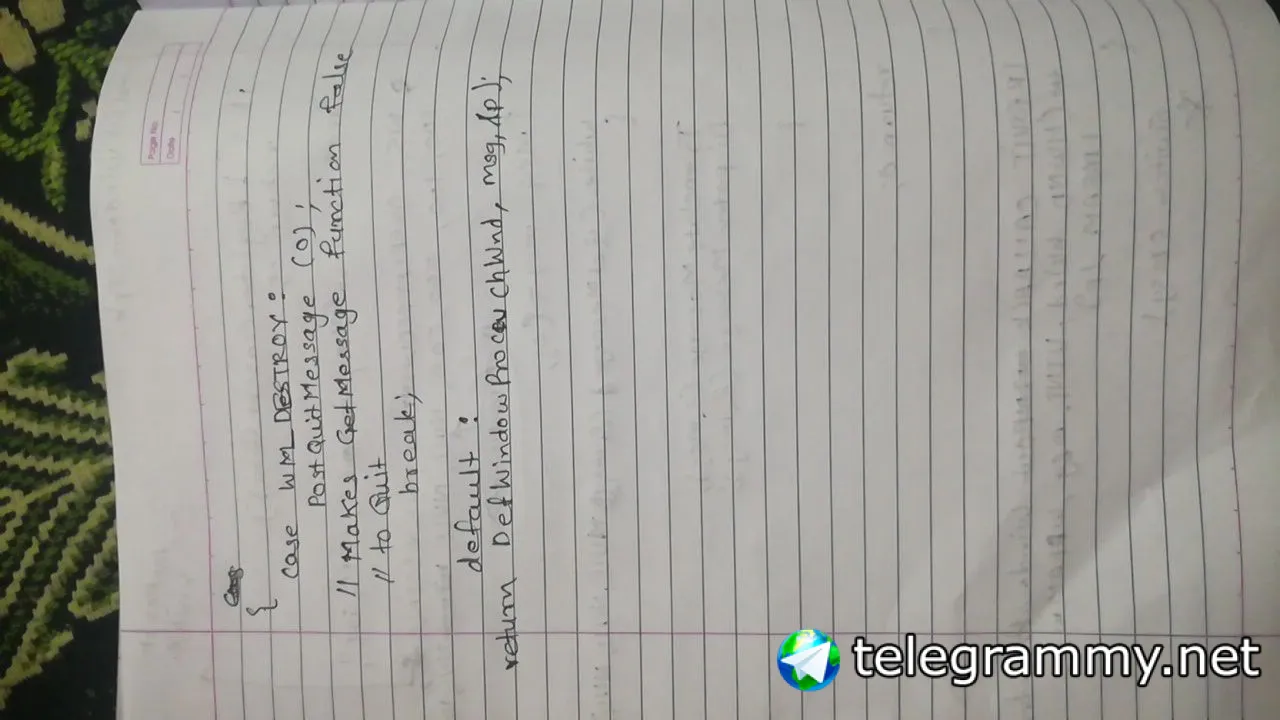 Page No.
Date
{
case WM_DESTROY:
PostQuitMessage (0);
// Makes GetMessage function false
// to Quit
break;
default:
return DefWindowProc(hWnd, msg, lp);
telegrammy.net